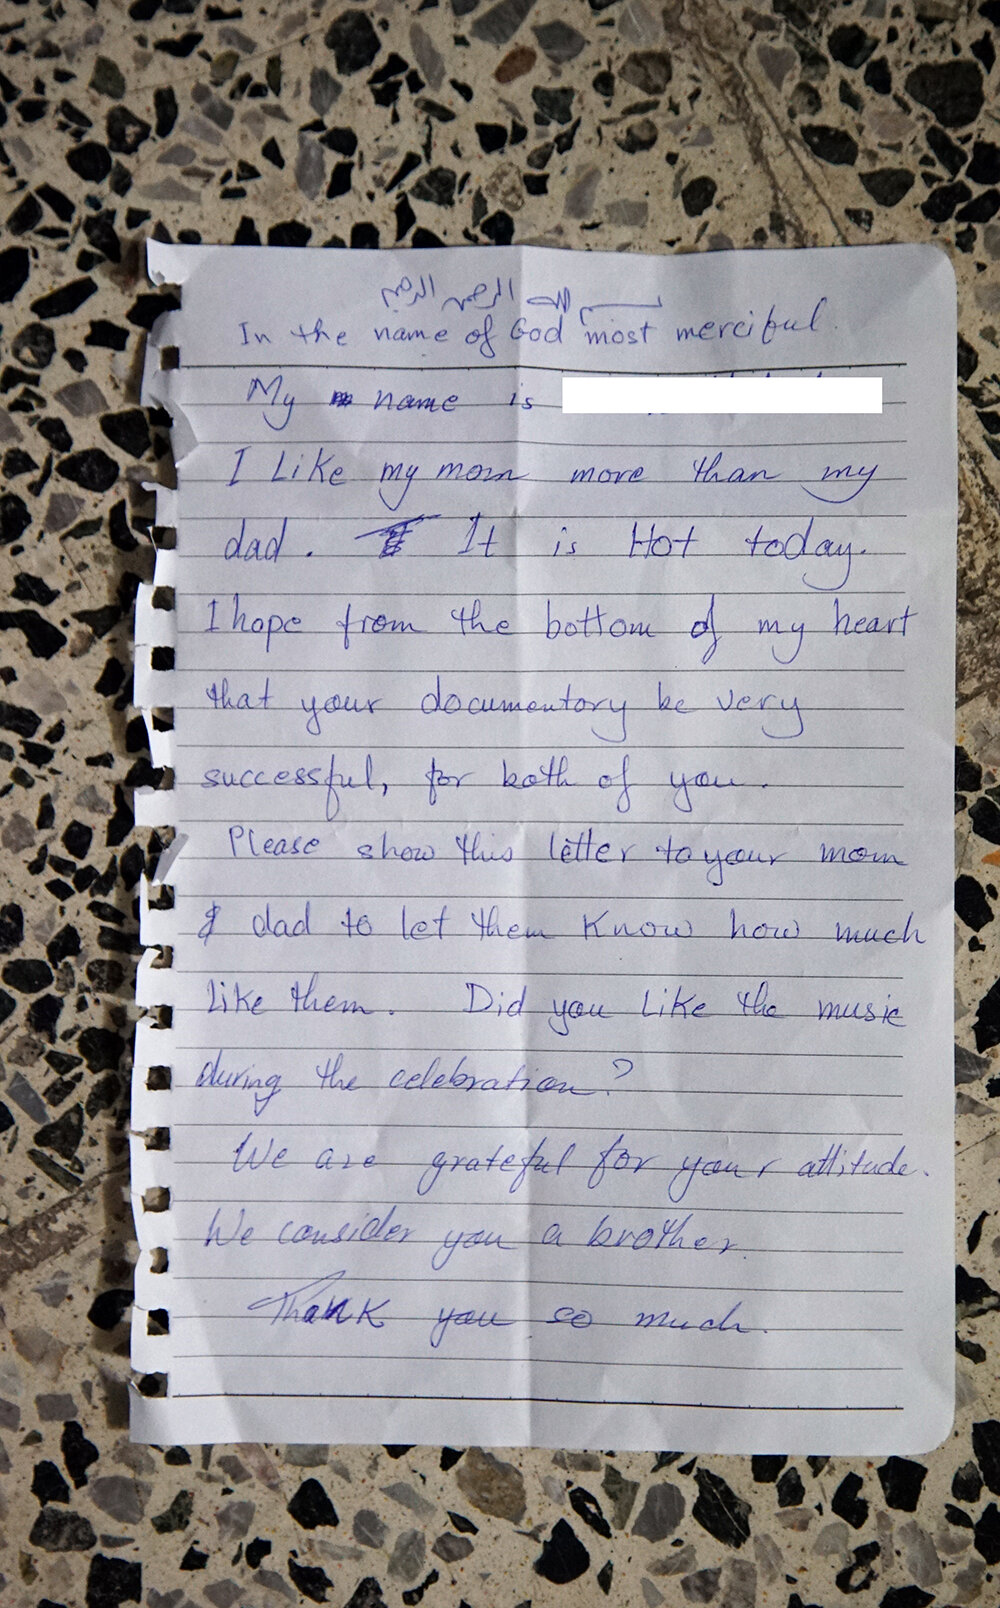 بسم الله الرحمن الرحيم
In the name of God most merciful.
My name is
I Like my mom more than my
dad. It is Hot today.
I hope from the bottom of my heart
that your documentory be very
successful, for both of you.
Please show this letter to your mom
& dad to let them know how much
like them. Did you like the music
during the celebration?
We are grateful for your attitude.
We consider you a brother.
Thank you so much.